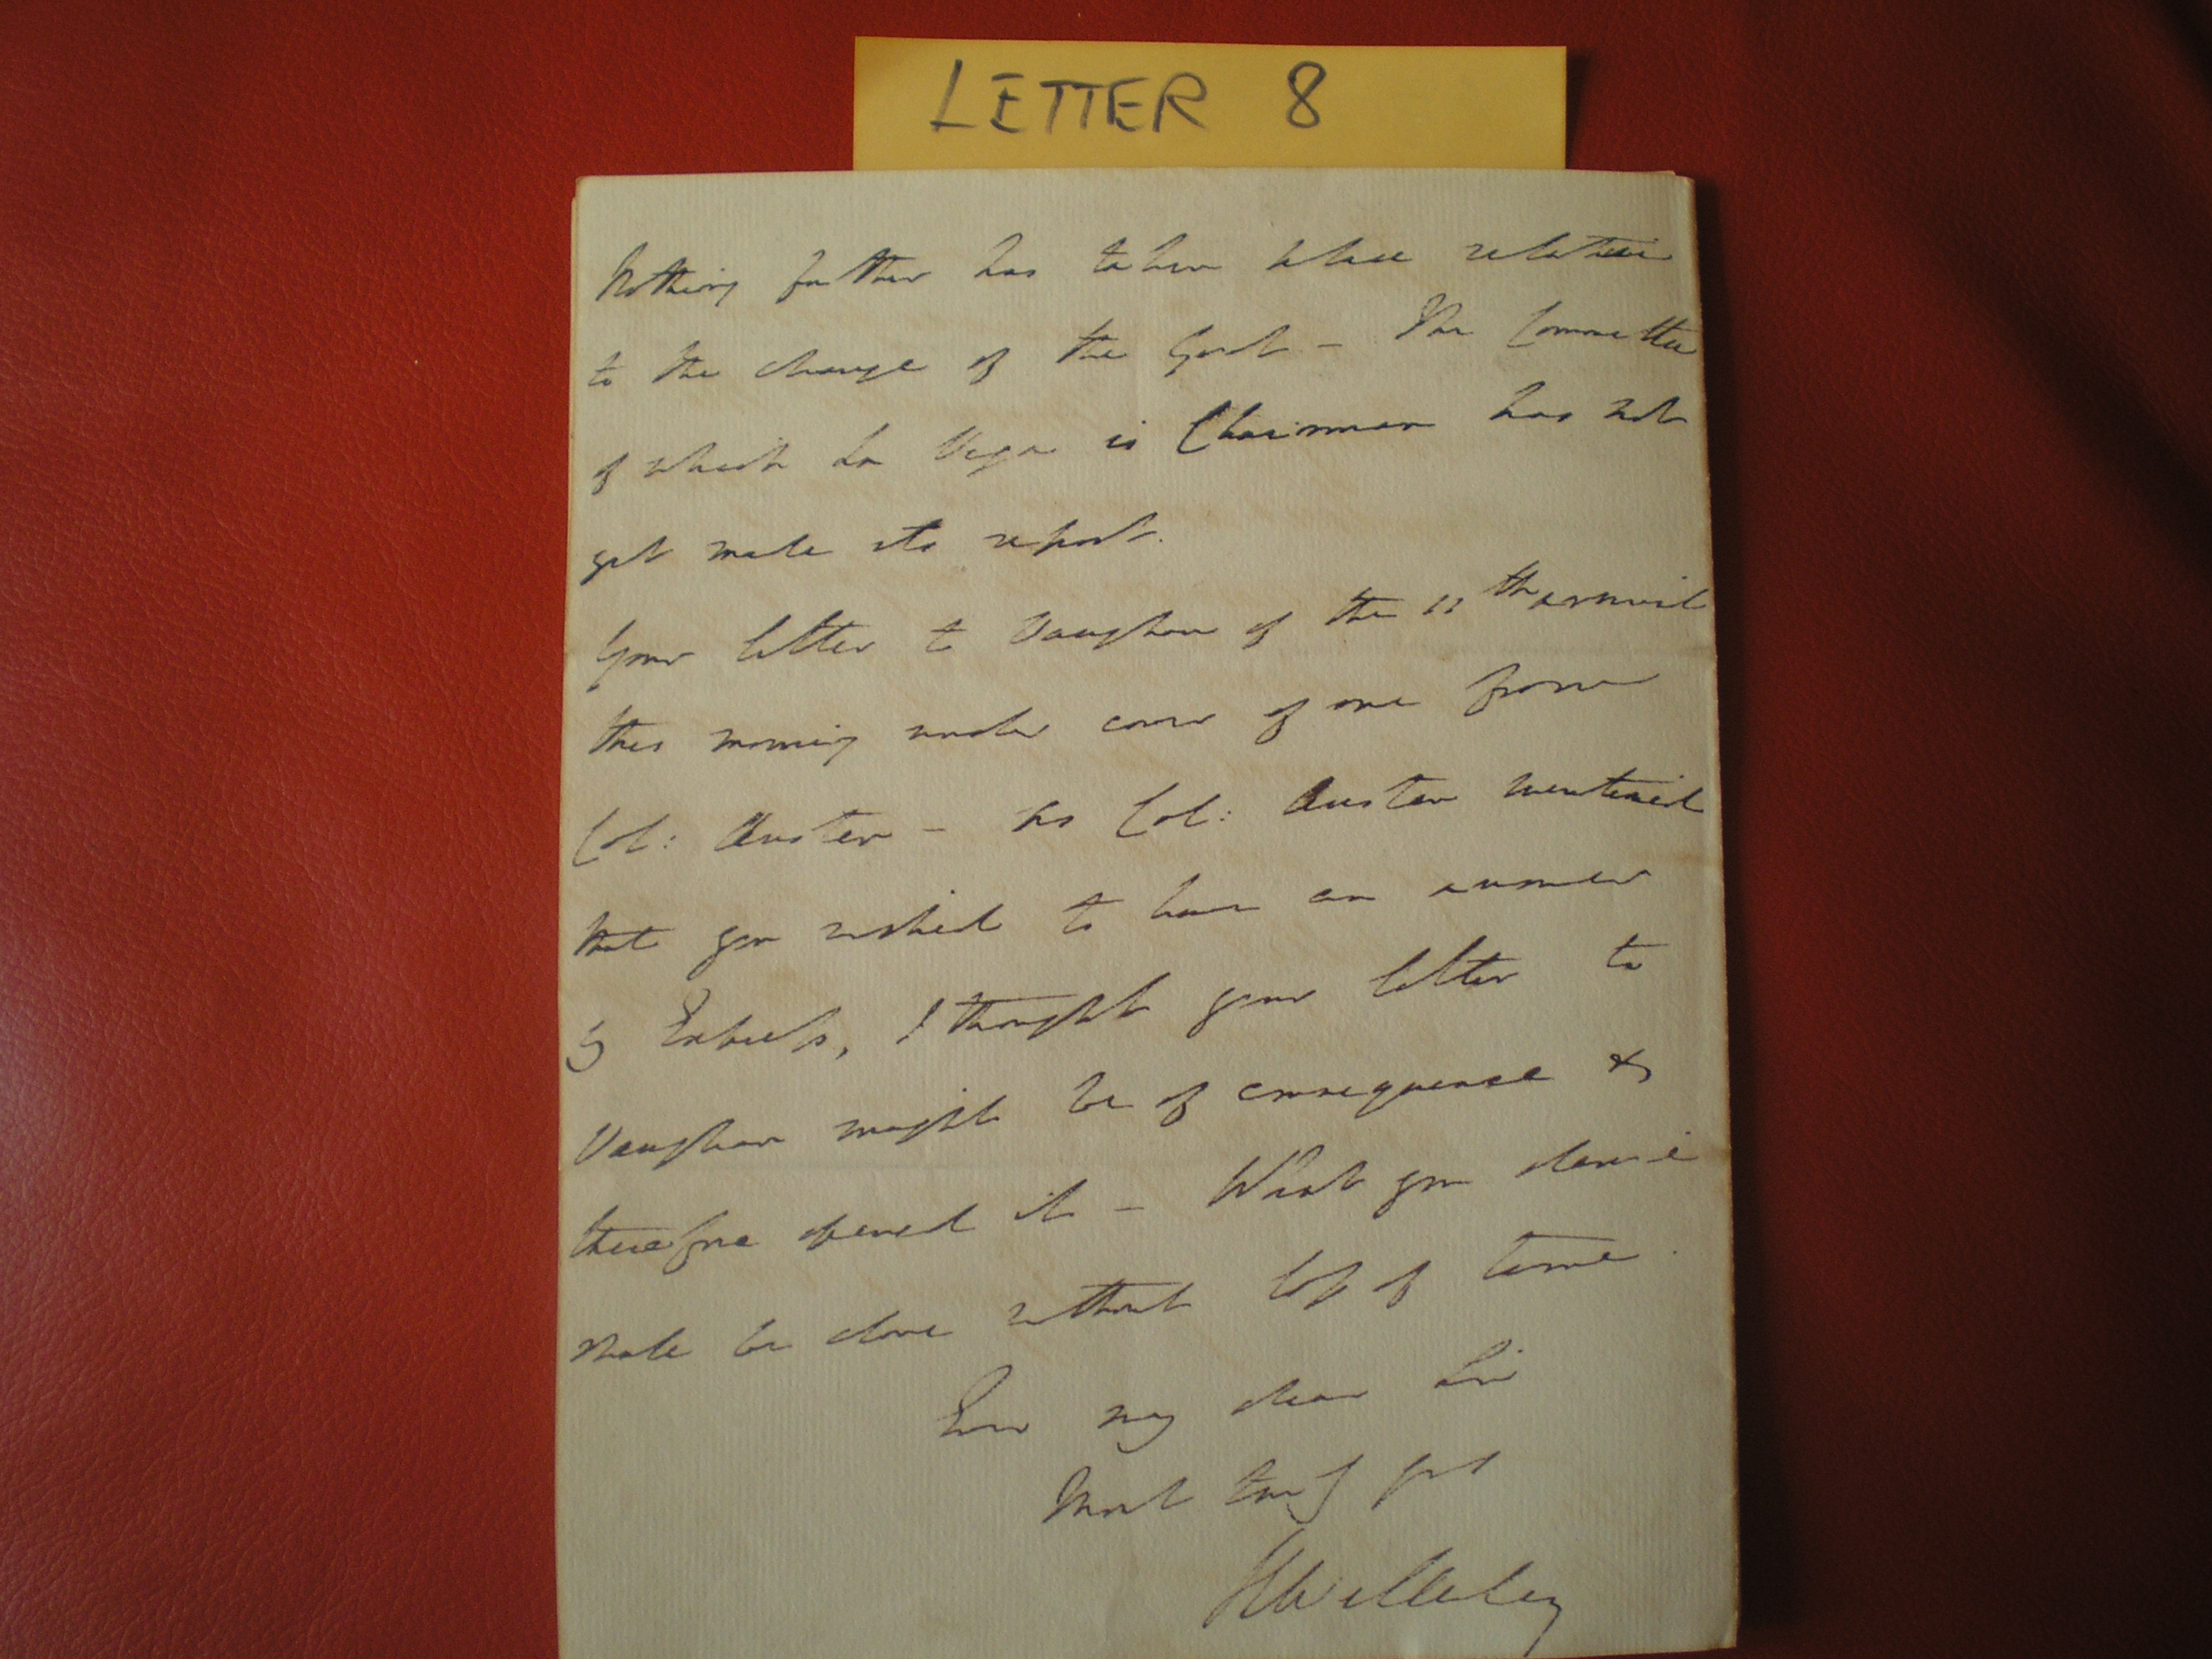 LETTER 8
Nothing further has taken place relative
to the change of the Govt - The Committee
of which La Vega is Chairman has not
yet made its report.
Your letter to Vaughan of the 11th arrived
this morning under cover of one from
Col: Austen - As Col: Austen mentioned
that you wished to have an answer
by Express, I thought your letter to
Vaughan might be of consequence &
therefore opened it - What you desire
shall be done without loss of time.
Ever my dear Sir
Most truly yrs
HWellesley